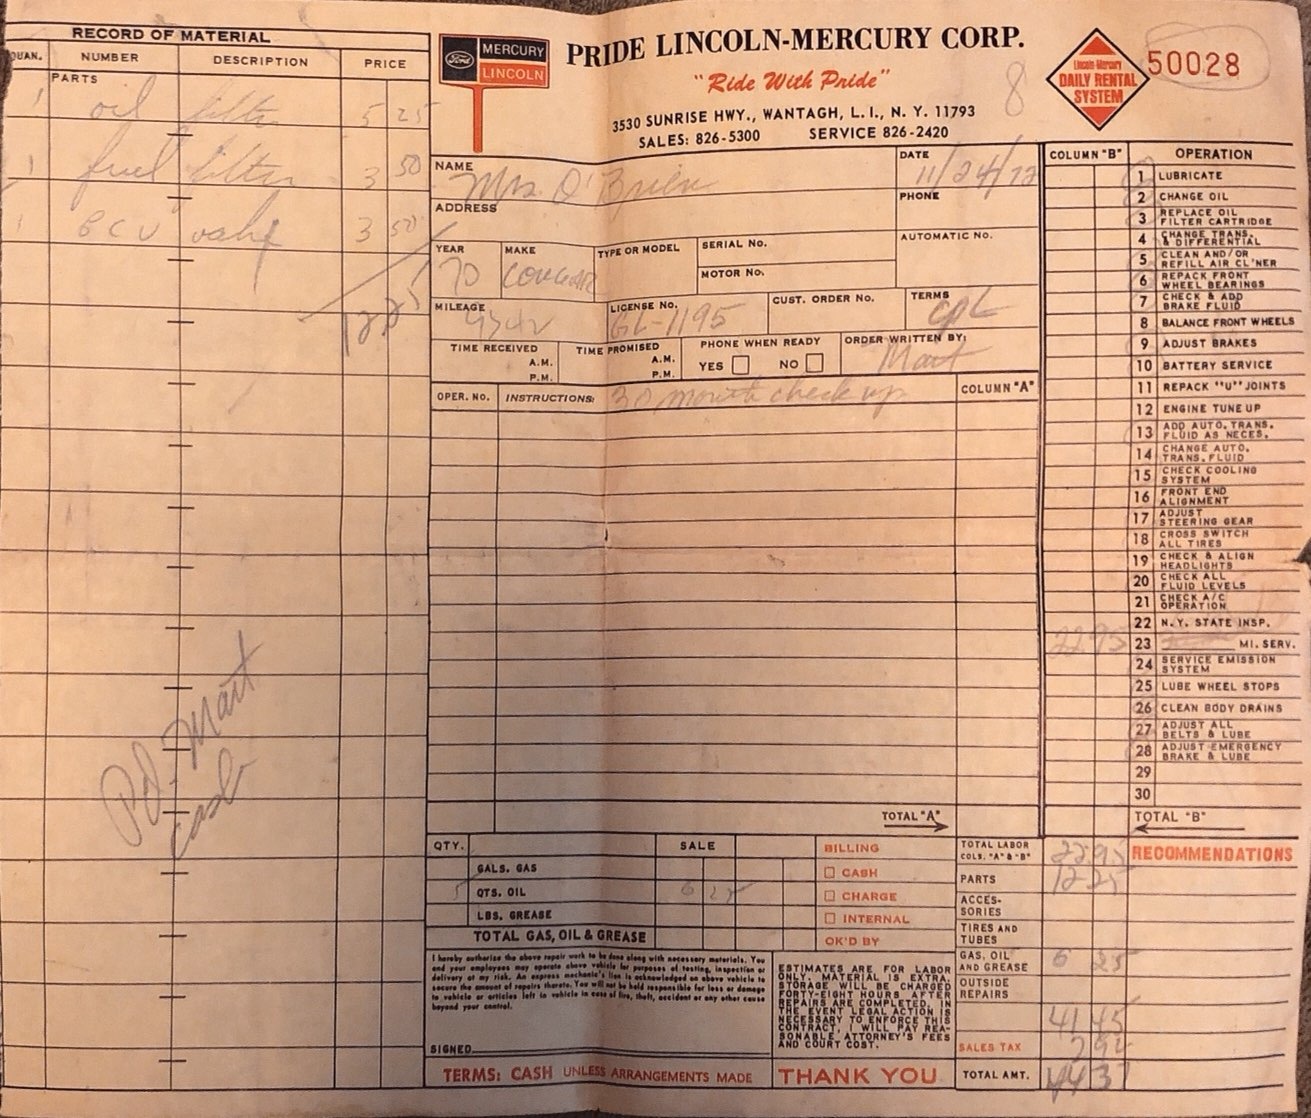 RECORD OF MATERIAL
QUAN. NUMBER DESCRIPTION PRICE
PARTS
1 oil filter 5 25
1 fuel filter 3 50
1 PCV valve 3 50
12 25
Pd. Mart
cash
Ford MERCURY
LINCOLN
PRIDE LINCOLN-MERCURY CORP.
"Ride With Pride"
3530 SUNRISE HWY., WANTAGH, L. I., N. Y. 11793
SALES: 826-5300 SERVICE 826-2420
8
Lincoln-Mercury
DAILY RENTAL
SYSTEM
50028
NAME Mrs. O'Brien
DATE 11/24/72
ADDRESS
PHONE
YEAR 70
MAKE COUGAR
TYPE OR MODEL
SERIAL No.
MOTOR No.
AUTOMATIC NO.
MILEAGE
LICENSE No. GL-1195
CUST. ORDER No.
TERMS
TIME RECEIVED A.M. P.M.
TIME PROMISED A.M. P.M.
PHONE WHEN READY
YES NO
ORDER WRITTEN BY: Mart
OPER. NO. INSTRUCTIONS: 30 month check up
COLUMN "A"
TOTAL "A"
COLUMN "B" OPERATION
1 LUBRICATE
2 CHANGE OIL
3 REPLACE OIL FILTER CARTRIDGE
4 CHANGE TRANS. & DIFFERENTIAL
5 CLEAN AND/OR REFILL AIR CL'NER
6 REPACK FRONT WHEEL BEARINGS
7 CHECK & ADD BRAKE FLUID
8 BALANCE FRONT WHEELS
9 ADJUST BRAKES
10 BATTERY SERVICE
11 REPACK "U" JOINTS
12 ENGINE TUNE UP
13 ADD AUTO. TRANS. FLUID AS NECES.
14 CHANGE AUTO. TRANS. FLUID
15 CHECK COOLING SYSTEM
16 FRONT END ALIGNMENT
17 ADJUST STEERING GEAR
18 CROSS SWITCH ALL TIRES
19 CHECK & ALIGN HEADLIGHTS
20 CHECK ALL FLUID LEVELS
21 CHECK A/C OPERATION
22 N.Y. STATE INSP.
22 95 23 MI. SERV.
24 SERVICE EMISSION SYSTEM
25 LUBE WHEEL STOPS
26 CLEAN BODY DRAINS
27 ADJUST ALL BELTS & LUBE
28 ADJUST EMERGENCY BRAKE & LUBE
29
30
TOTAL "B"
QTY. SALE
GALS. GAS
5 QTS. OIL 6 25
LBS. GREASE
TOTAL GAS, OIL & GREASE
BILLING
CASH
CHARGE
INTERNAL
OK'D BY
TOTAL LABOR COLS. "A" & "B" 22 95
PARTS 12 25
ACCES-
SORIES
TIRES AND TUBES
GAS, OIL AND GREASE 6 25
OUTSIDE REPAIRS
41 45
SALES TAX 2 92
TOTAL AMT. 44 37
RECOMMENDATIONS
I hereby authorize the above repair work to be done along with necessary materials. You
and your employees may operate above vehicle for purposes of testing, inspection or
delivery at my risk. An express mechanic's lien is acknowledged on above vehicle to
secure the amount of repairs thereto. You will not be held responsible for loss or damage
to vehicle or articles left in vehicle in case of fire, theft, accident or any other cause
beyond your control.
SIGNED
ESTIMATES ARE FOR LABOR
ONLY, MATERIAL IS EXTRA.
STORAGE WILL BE CHARGED
FORTY-EIGHT HOURS AFTER
REPAIRS ARE COMPLETED. IN
THE EVENT LEGAL ACTION IS
NECESSARY TO ENFORCE THIS
CONTRACT, I WILL PAY REA-
SONABLE ATTORNEY'S FEES
AND COURT COST.
TERMS: CASH UNLESS ARRANGEMENTS MADE
THANK YOU